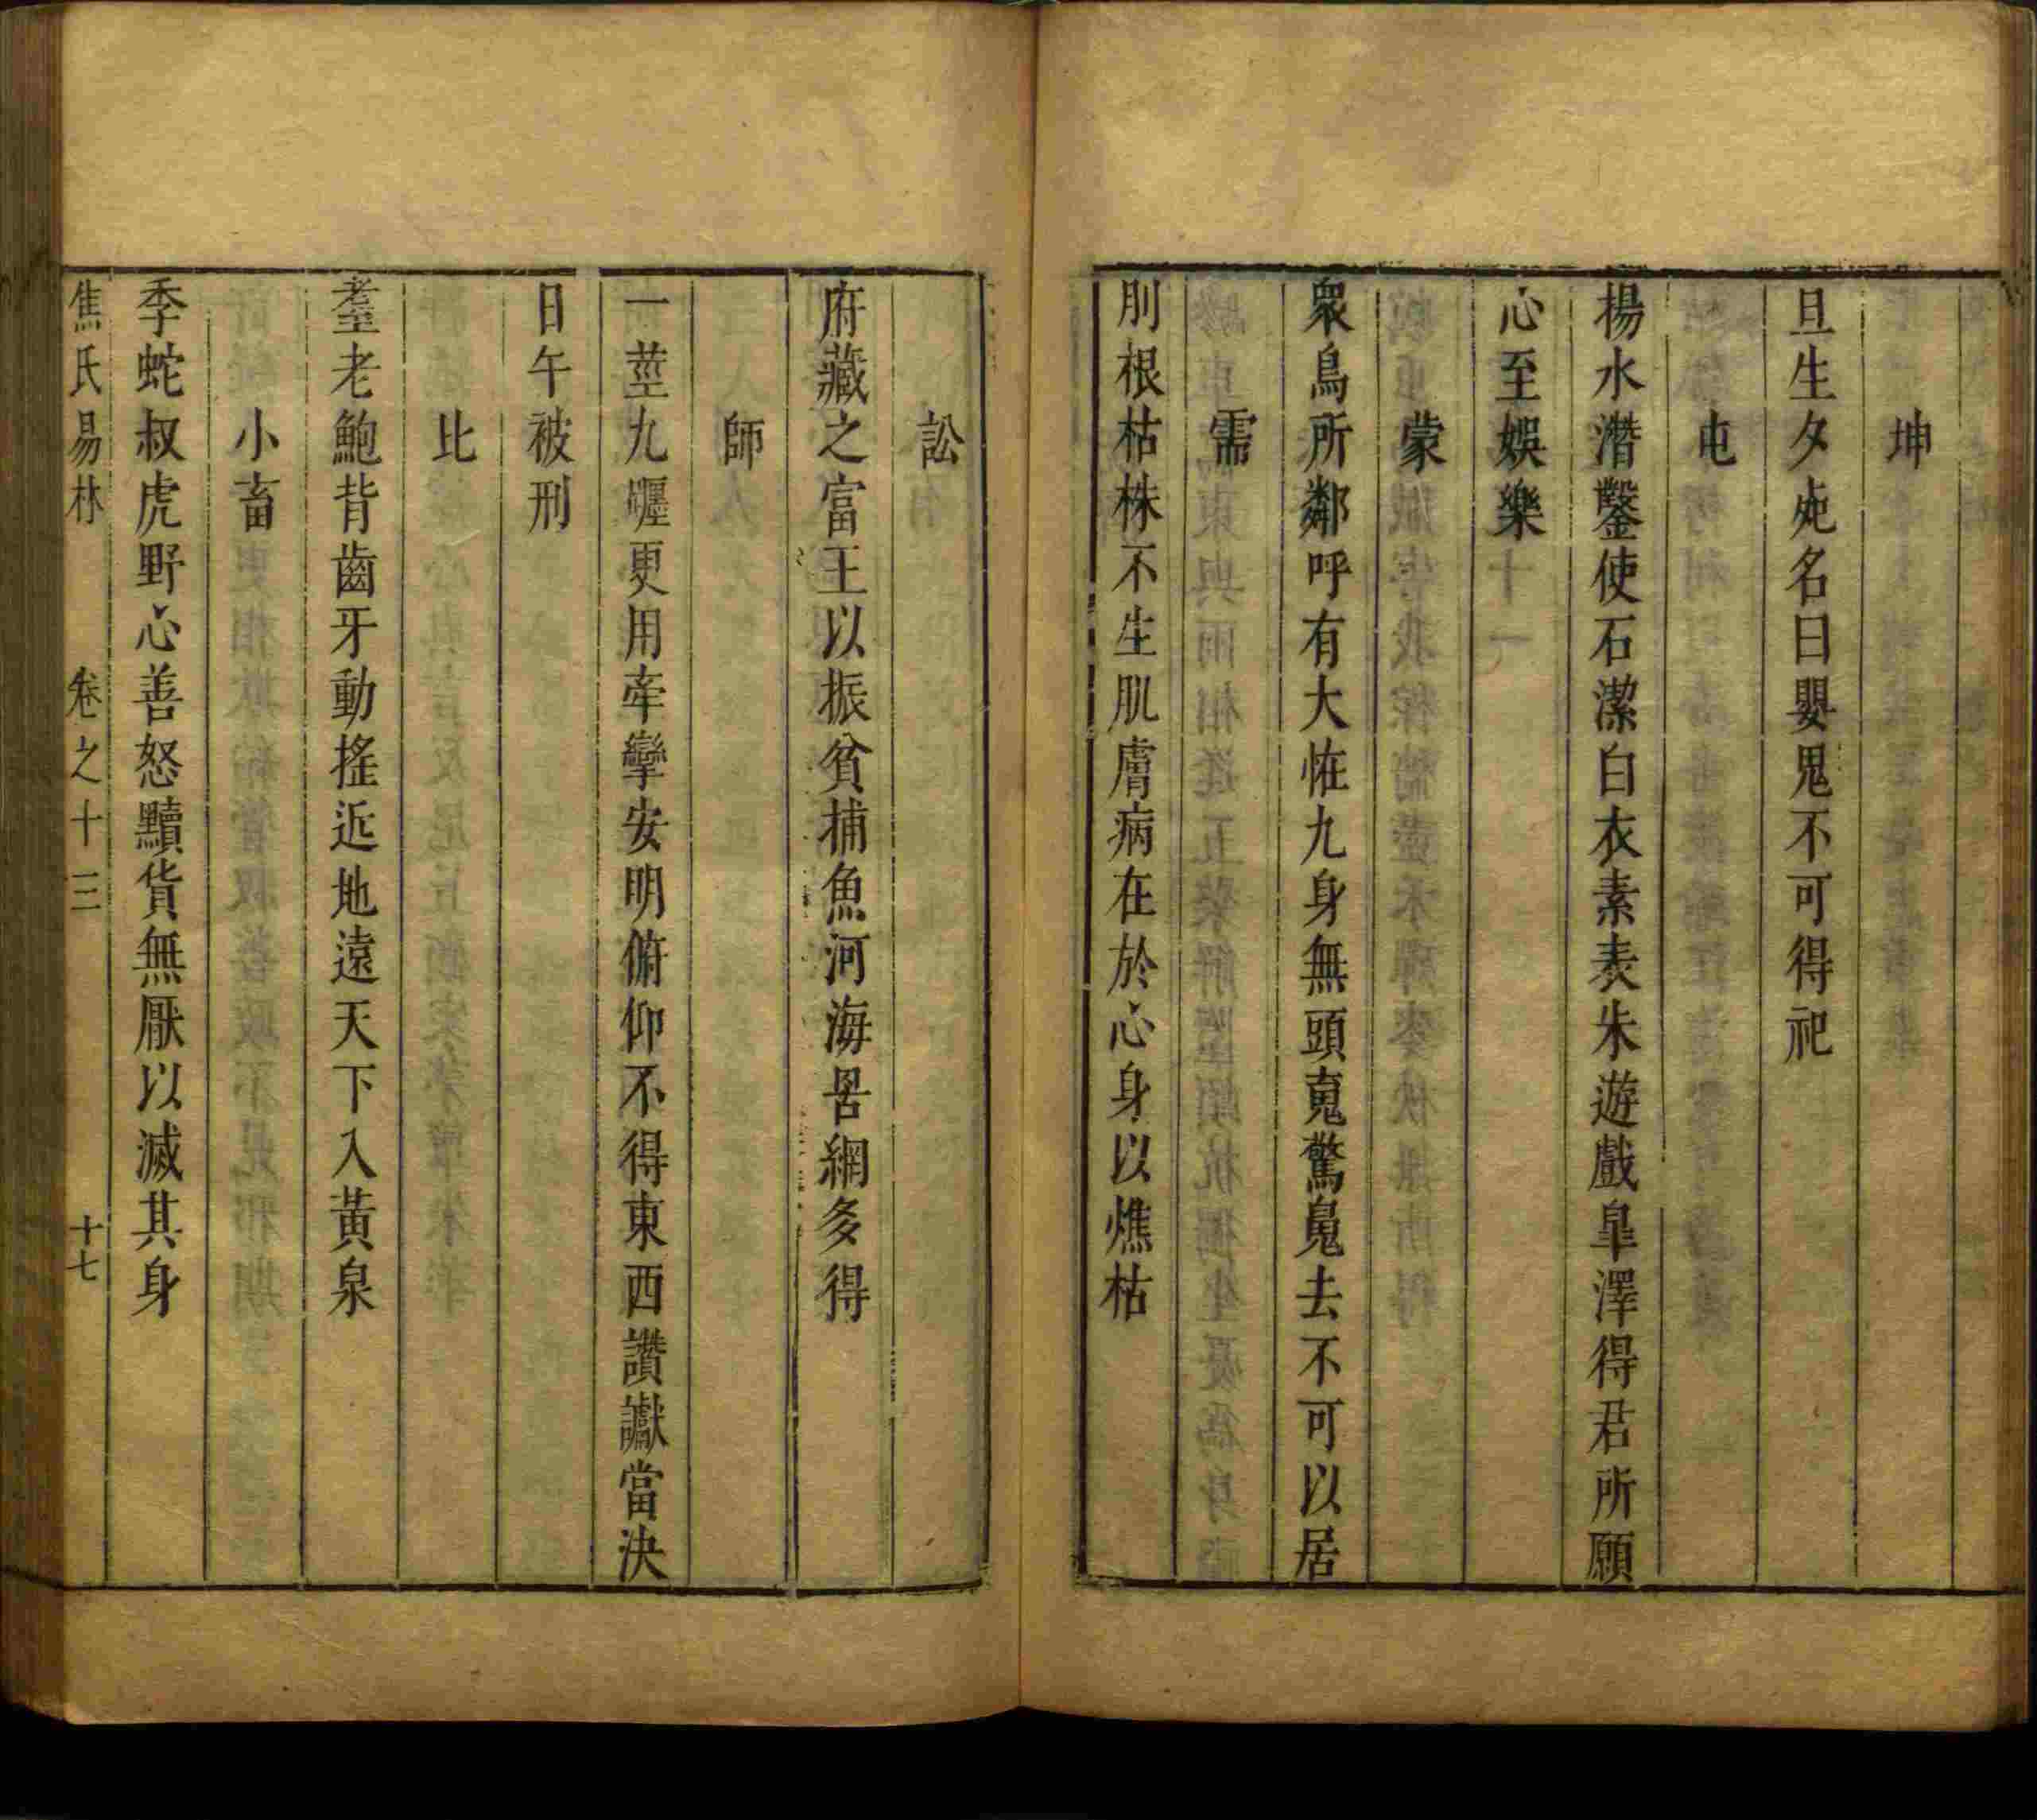 坤
旦生夕死名曰嬰鬼不可得祀
屯
揚水潛鑿使石潔白衣素表朱遊戲皐澤得君所願
心至娛樂
蒙
衆鳥所鄰呼有大恠九身無頭䰟驚鬼去不可以居
需
刖根枯株不生肌膚病在於心身以燋枯
訟
府藏之富王以振貧捕魚河海罟網多得
師
一莖九纒更用牽攣安明俯仰不得東西讚讞當決
日午被刑
比
耋老鮐背齒牙動搖近地遠天下入黃泉
小畜
季蛇叔虎野心善怒黷貨無厭以滅其身
焦氏易林 卷之十三 十七